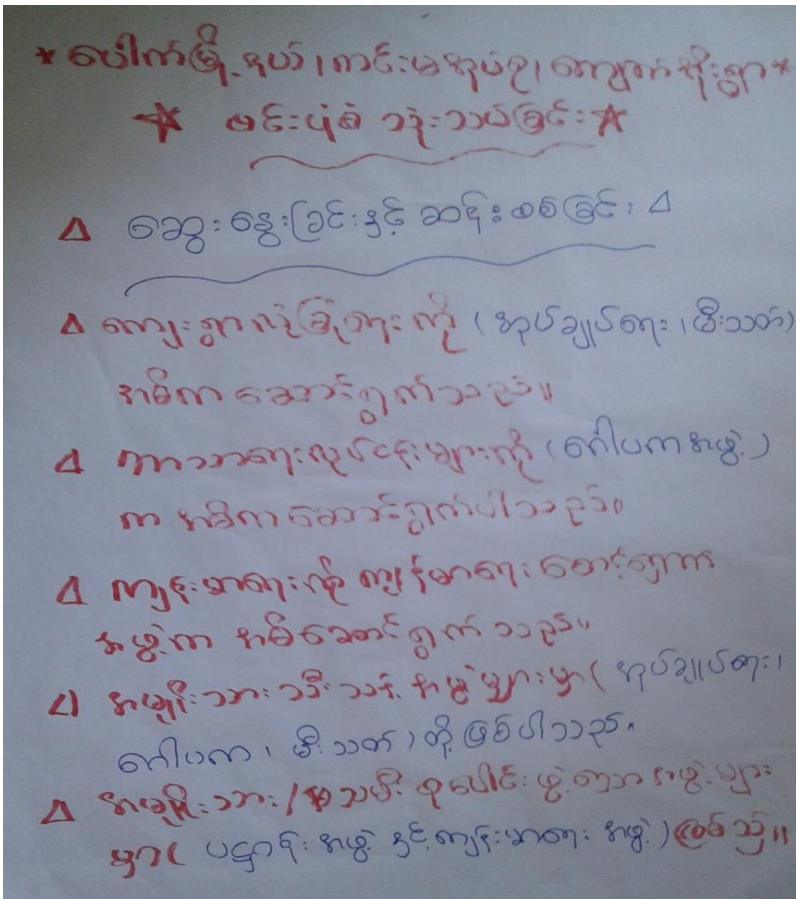 * ပေါက်မြို့နယ်၊ ကင်းမအုပ်စု၊ ကျောက်အိုးရွာ *
☆ ဗင်းပုံစံ သုံးသပ်ခြင်း ☆
∆ ဆွေးနွေးခြင်းနှင့် ဆန်းစစ်ခြင်း ∆
∆ ကျေးရွာလုံခြုံရေးကို (အုပ်ချုပ်ရေး၊ မီးသတ်)
အဓိက ဆောင်ရွက်သည်။
∆ ဘာသာရေးလုပ်ငန်းများကို (ဂေါပကအဖွဲ့)
က အဓိက ဆောင်ရွက်ပါသည်။
∆ ကျန်းမာရေးကို ကျန်းမာရေး စောင့်ရှောက်
အဖွဲ့က အဓိဆောင်ရွက်သည်။
∆ အမျိုးသားသီးသန့် အဖွဲ့များမှာ (အုပ်ချုပ်ရေး၊
ဂေါပက၊ မီးသတ်) တို့ဖြစ်ပါသည်။
∆ အမျိုးသား/သမီး စုပေါင်းဖွဲ့သောအဖွဲ့များ
မှာ( ပဋ္ဌာန်းအဖွဲ့ နှင့်ကျန်းမာရေး အဖွဲ့) ဖြစ်သည်။